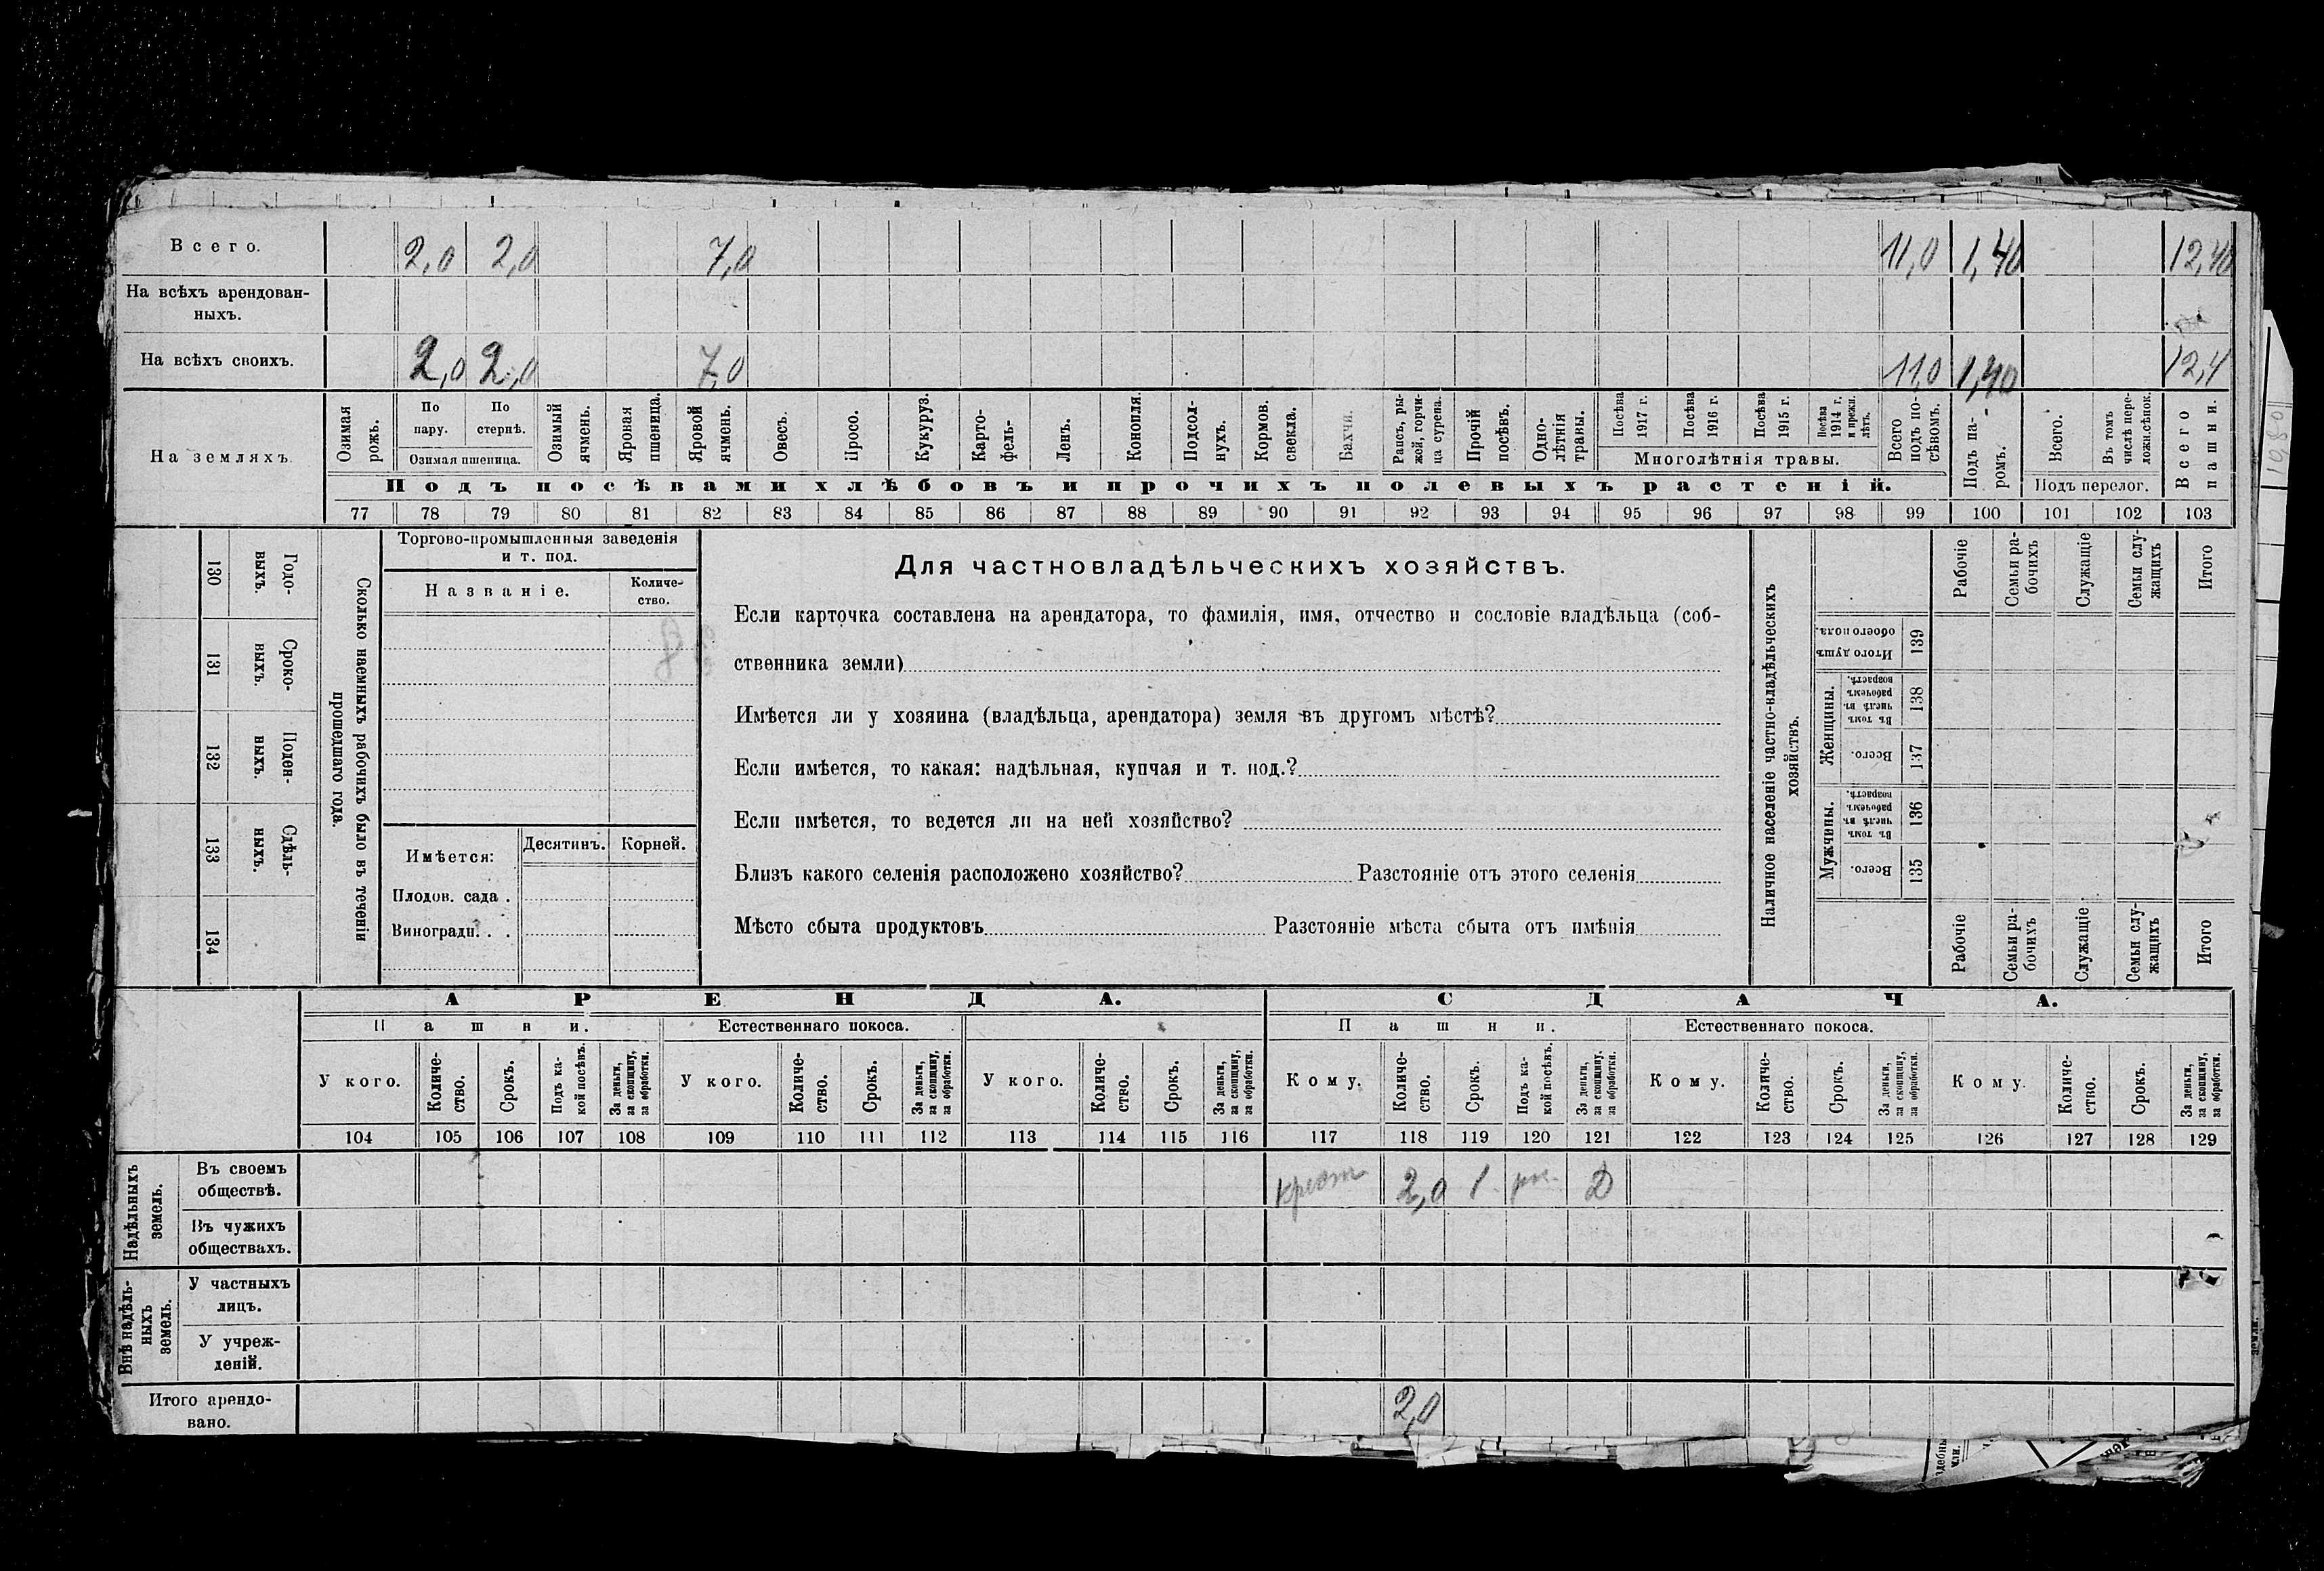 Всего. 2,0 2,0 7,0 11,0 1,40 12,40
На всѣхъ арендован-
ныхъ.
На всѣхъ своихъ. 2,0 2,0 7,0 11,0 1,40 12,4
На земляхъ
Озимая рожь.
По пару.
По стернѣ.
Озимая пшеница.
Озимый ячмень.
Яровая пшеница.
Яровой ячмень.
Овесъ.
Просо.
Кукуруз.
Карто-
фель-
Ленъ.
Конопля.
Подсол-
нухъ.
Кормов. свекла.
Бахчи.
Рапсъ, ры-
жей, горчи-
ца сурепа.
Прочій посѣвъ.
Одно-
лѣтнія травы.
Посѣва 1917 г.
Посѣва 1916 г.
Посѣва 1915 г.
Посѣва 1914 г. и прежн. лѣтъ.
Многолѣтнія травы.
Всего подъ по-
сѣвомъ.
Подъ па-
ромъ.
Всего.
Въ томъ числѣ пере-
ложн.сѣнок.
Подъ перелог.
Всего пашни.
Подъ посѣвами хлѣбовъ и прочихъ полевыхъ растеній.
77 78 79 80 81 82 83 84 85 86 87 88 89 90 91 92 93 94 95 96 97 98 99 100 101 102 103
130 Годо-
выхъ.
131 Сроко-
выхъ.
132 Поден-
ныхъ.
133 Сдѣль-
ныхъ.
134
Сколько наемныхъ рабочихъ было въ теченіи
прошедшаго года.
Торгово-промышленныя заведенія
и т. под.
Названіе.
Количе-
ство.
Имѣется:
Десятинъ. Корней.
Плодов. сада .
Виноградн. . .
Для частновладѣльческихъ хозяйствъ.
Если карточка составлена на арендатора, то фамилія, имя, отчество и сословіе владѣльца (соб-
ственника земли)
Имѣется ли у хозяина (владѣльца, арендатора) земля въ другомъ мѣстѣ?
Если имѣется, то какая: надѣльная, купчая и т. под.?
Если имѣется, то ведется ли на ней хозяйство?
Близъ какого селенія расположено хозяйство? Разстояніе отъ этого селенія
Мѣсто сбыта продуктовъ Разстояніе мѣста сбыта отъ имѣнія
Наличное населеніе частно-владѣльческихъ
хозяйствъ.
Рабочіе
Семьи ра-
бочихъ
Служащіе
Семьи слу-
жащихъ
Итого
Итого душъ обоего пола. 139
Женщины.
Въ томъ числѣ въ рабочемъ возрастѣ. 138
Всего. 137
Мужчины.
Въ томъ числѣ въ рабочемъ возрастѣ. 136
Всего. 135
Рабочіе
Семьи ра-
бочихъ
Служащіе
Семьи слу-
жащихъ
Итого
АРЕНДА. СДАЧА.
Пашни. Естественнаго покоса. Пашни. Естественнаго покоса.
У кого.
Количе-
ство.
Срокъ.
Подъ ка-
кой посѣвъ.
За деньги, за скопщину, за обработки.
У кого.
Количе-
ство.
Срокъ.
За деньги, за скопщину, за обработки.
У кого.
Количе-
ство.
Срокъ.
За деньги, за скопщину, за обработки.
Кому.
Количе-
ство.
Срокъ.
Подъ ка-
кой посѣвъ.
За деньги, за скопщину, за обработки.
Кому.
Количе-
ство.
Срокъ.
За деньги, за скопщину, за обработки.
Кому.
Количе-
ство.
Срокъ.
За деньги, за скопщину, за обработки.
104 105 106 107 108 109 110 111 112 113 114 115 116 117 118 119 120 121 122 123 124 125 126 127 128 129
Надѣльныхъ земель.
Въ своемъ
обществѣ.
крест 2,0 1 Д
Въ чужихъ
обществахъ.
Внѣ надѣль-
ныхъ земель.
У частныхъ
лицъ.
У учреж-
деній.
Итого арендо-
вано.
2,0
10,80